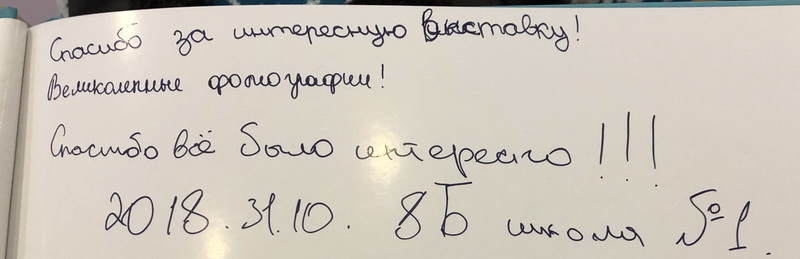 Спасибо за интересную выставку!
Великолепные фотографии!
Спасибо всё было интересно!!!
2018.31.10. 8Б школа №1.